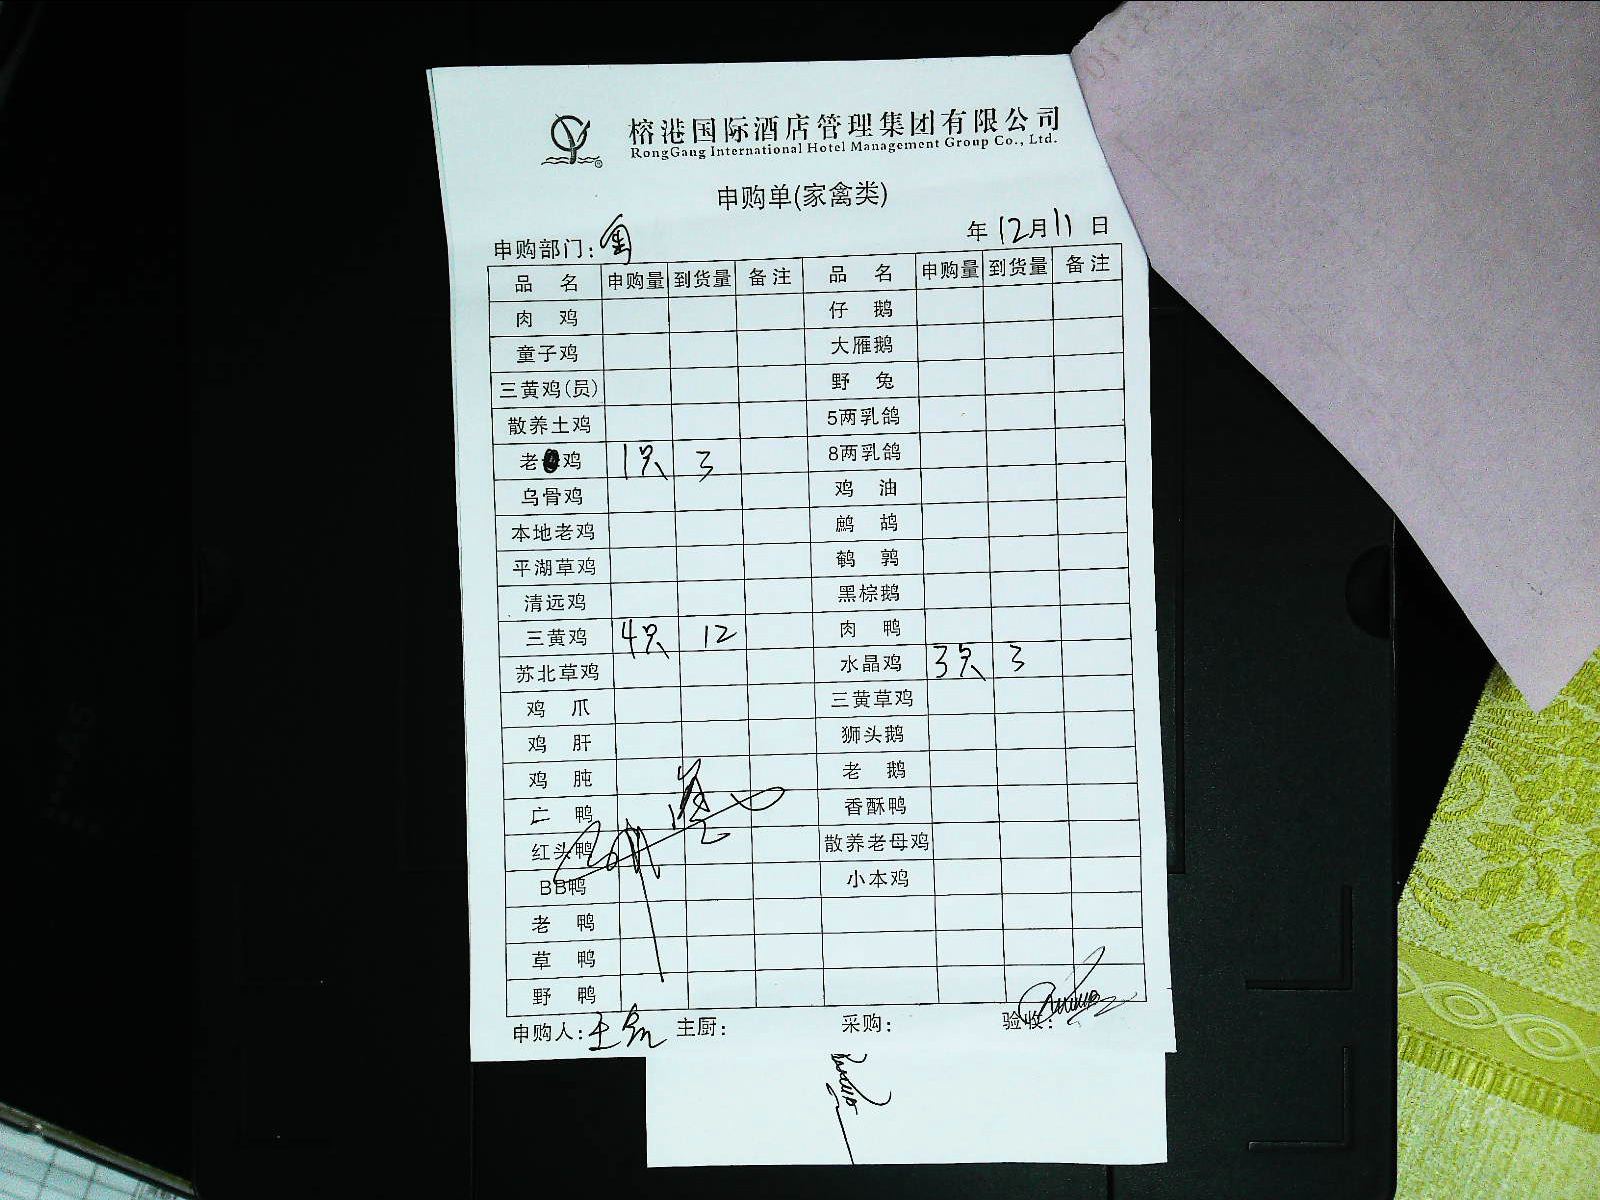 榕港国际酒店管理集团有限公司
RongGang International Hotel Management Group Co., Ltd.
申购单(家禽类)
申购部门: 年12月11日
品名 申购量 到货量 备注 品名 申购量 到货量 备注
肉鸡 仔鹅
童子鸡 大雁鹅
三黄鸡(员) 野兔
散养土鸡 5两乳鸽
老鸡 1只 3 8两乳鸽
乌骨鸡 鸡油
本地老鸡 鹧鸪
平湖草鸡 鹌鹑
清远鸡 黑棕鹅
三黄鸡 4只 12 肉鸭
苏北草鸡 水晶鸡 3只 3
鸡爪 三黄草鸡
鸡肝 狮头鹅
鸡肫 老鹅
亡鸭 香酥鸭
红头鸭 散养老母鸡
BB鸭 小本鸡
老鸭
草鸭
野鸭
申购人:王 主厨: 采购: 验收: